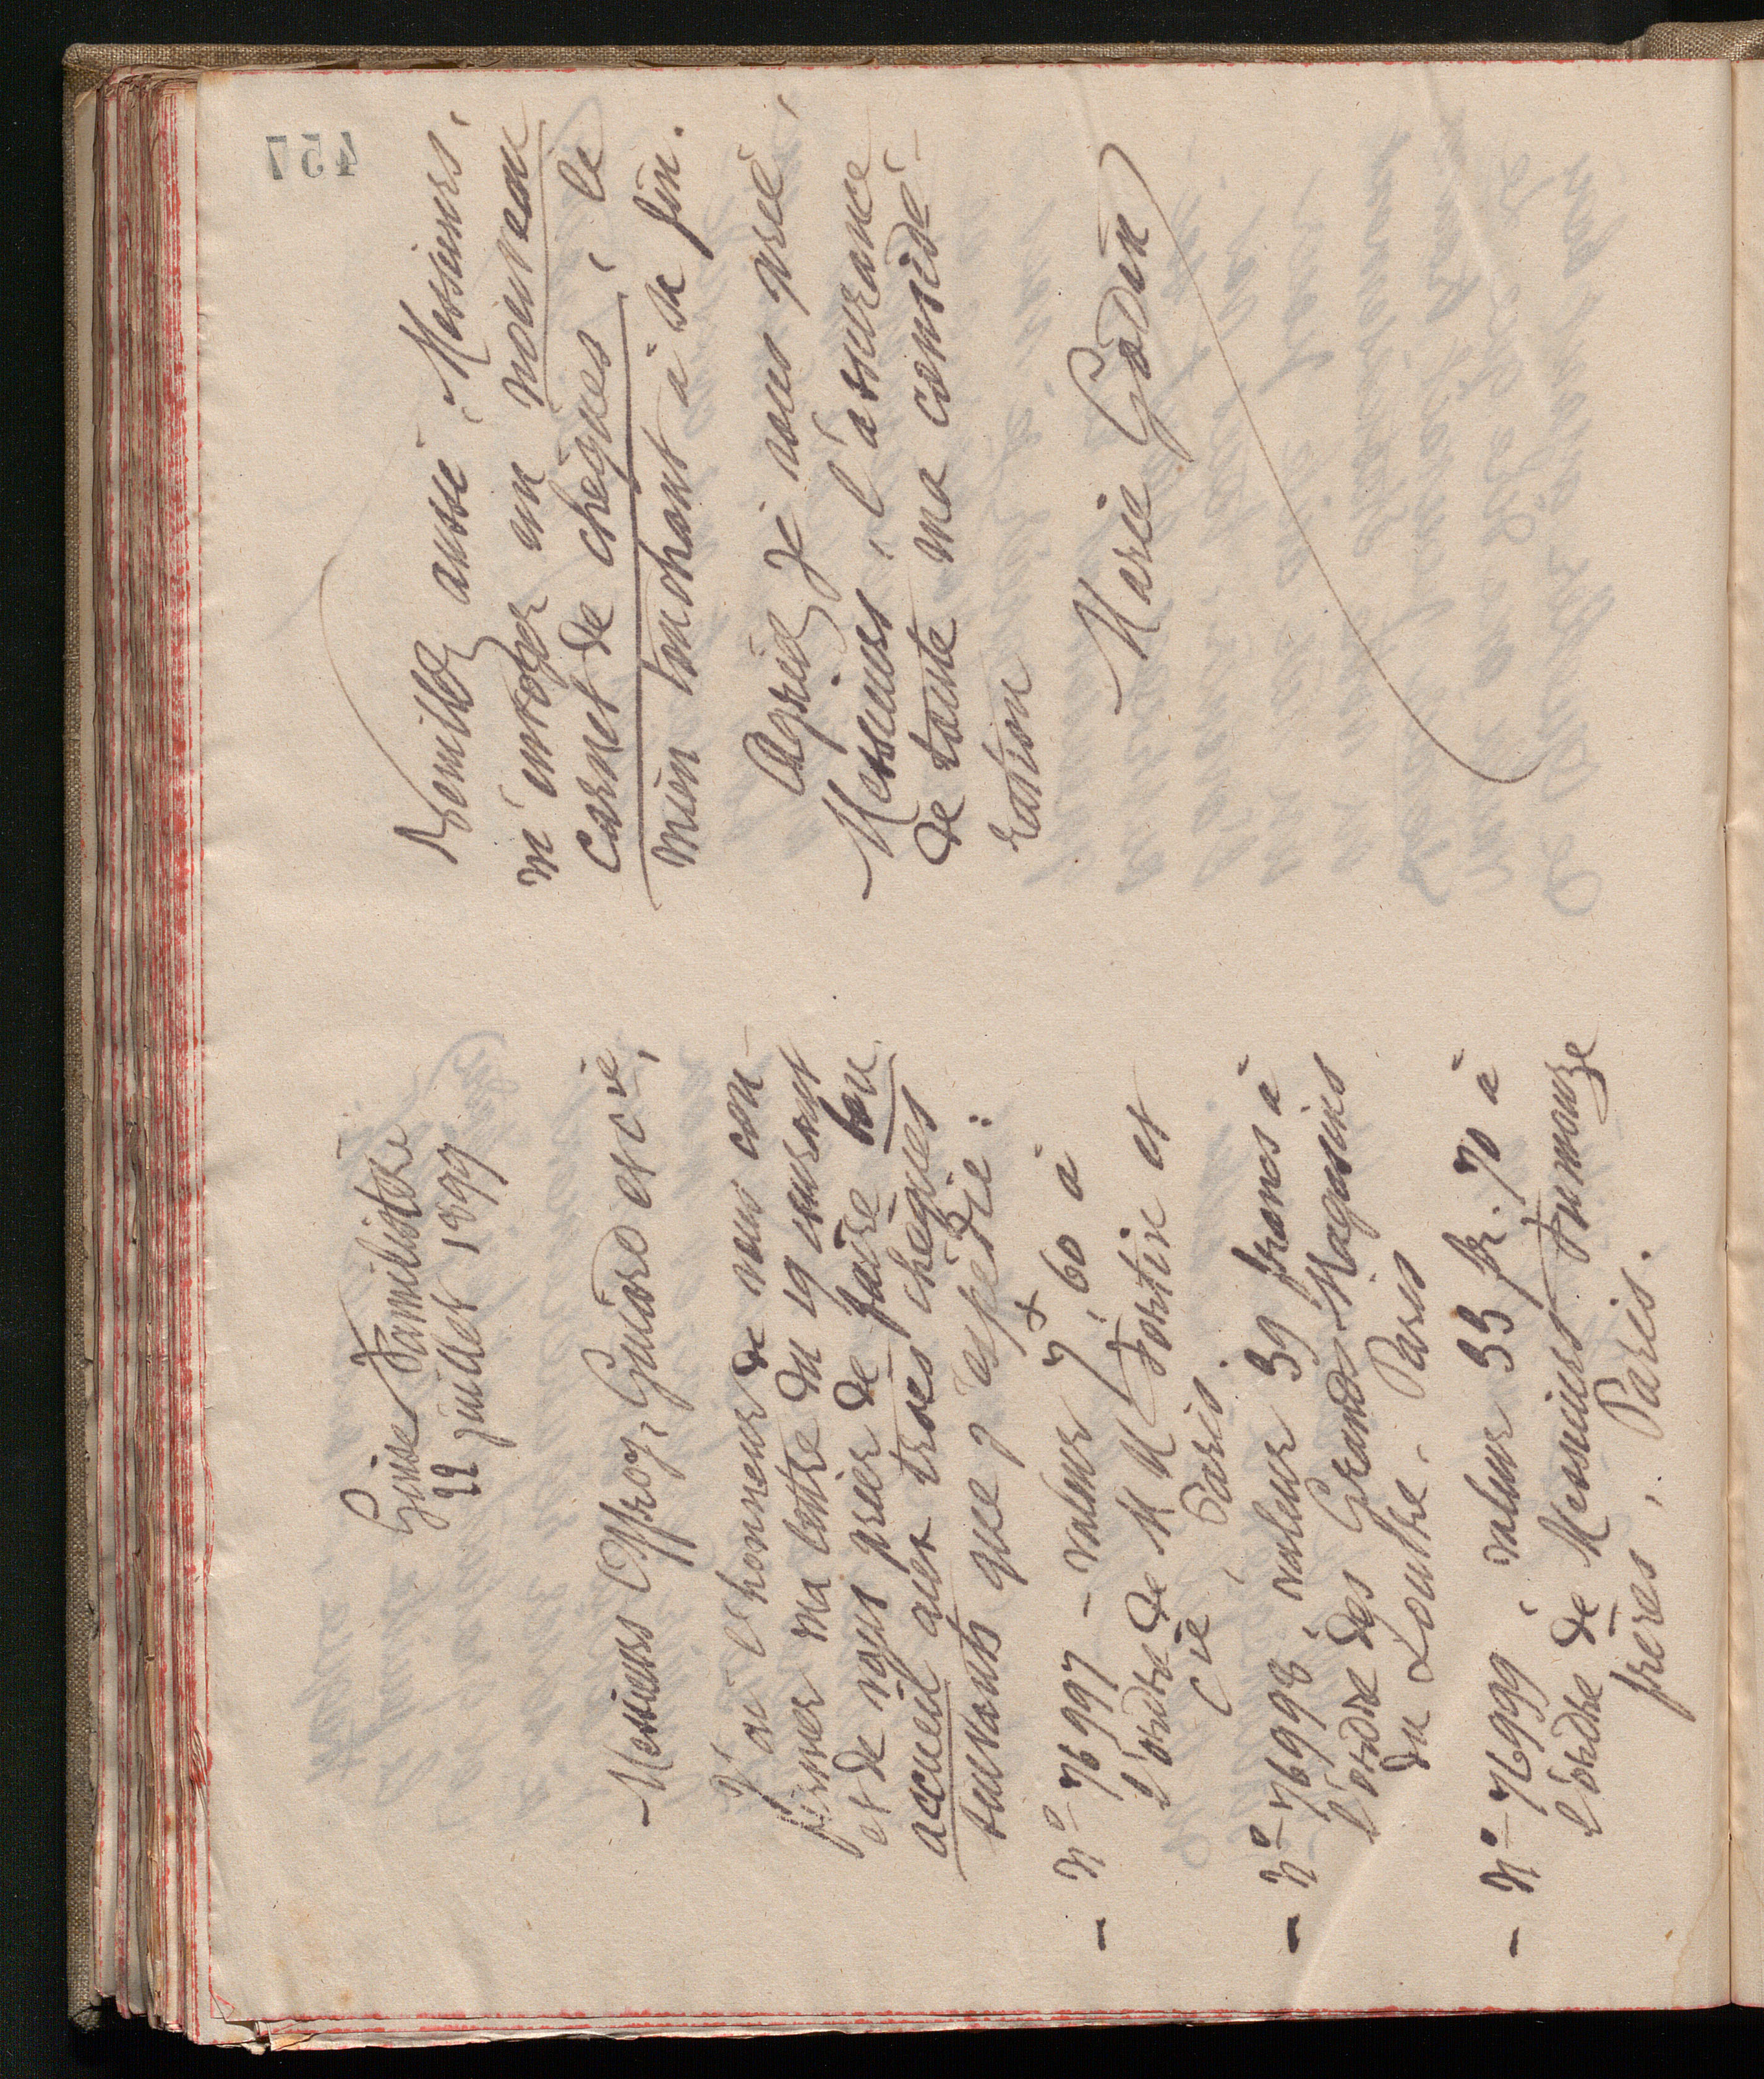 Guise Familistère
22 juillet 1899
Messieurs Offroy, Guiard et Cie,
J'ai l'honneur de vous con-
firmer ma lettre du 19 courant
et de vous prier de faire bon
accueil aux trois chèques
suivants que j'expédie :
- No 76997 - valeur 7f,60 à
l'ordre de M M Fortin et
Cie, Paris.
- No 76998, valeur 39 francs à
l'ordre des Grands Magasins
du Louvre. Paris
- No 76999, valeur 33 fr. 70 à
l'ordre de Messieurs Fumouze
frères, Paris.
457
Veuillez aussi, Messieurs,
m'envoyer un nouveau
carnet de chèques, le
mien touchant à sa fin.
Agréez je vous prie,
Messieurs, l'assurance
de toute ma considé-
ration
Marie Godin